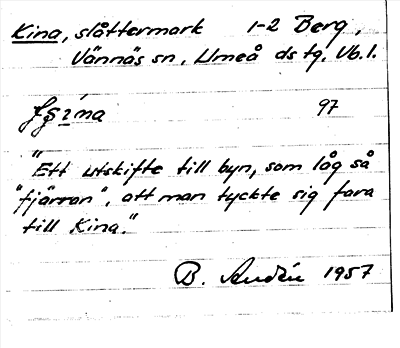 Kina, slåttermark 1-2 Berg,
Vännäs sn, Umeå ds tg, Vb.l.
97
"Ett utskifte till byn, som låg så
"fjärran", att man tyckte sig fara
till Kina."
B. Audén 1957